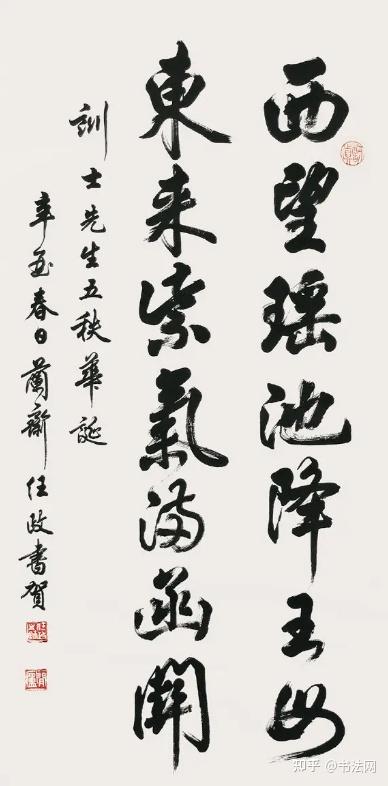 西望瑶池降王母
東来紫氣满函關
訓士先生五秩華誕
辛酉春日蘭齋任政書賀
知乎 @书法网